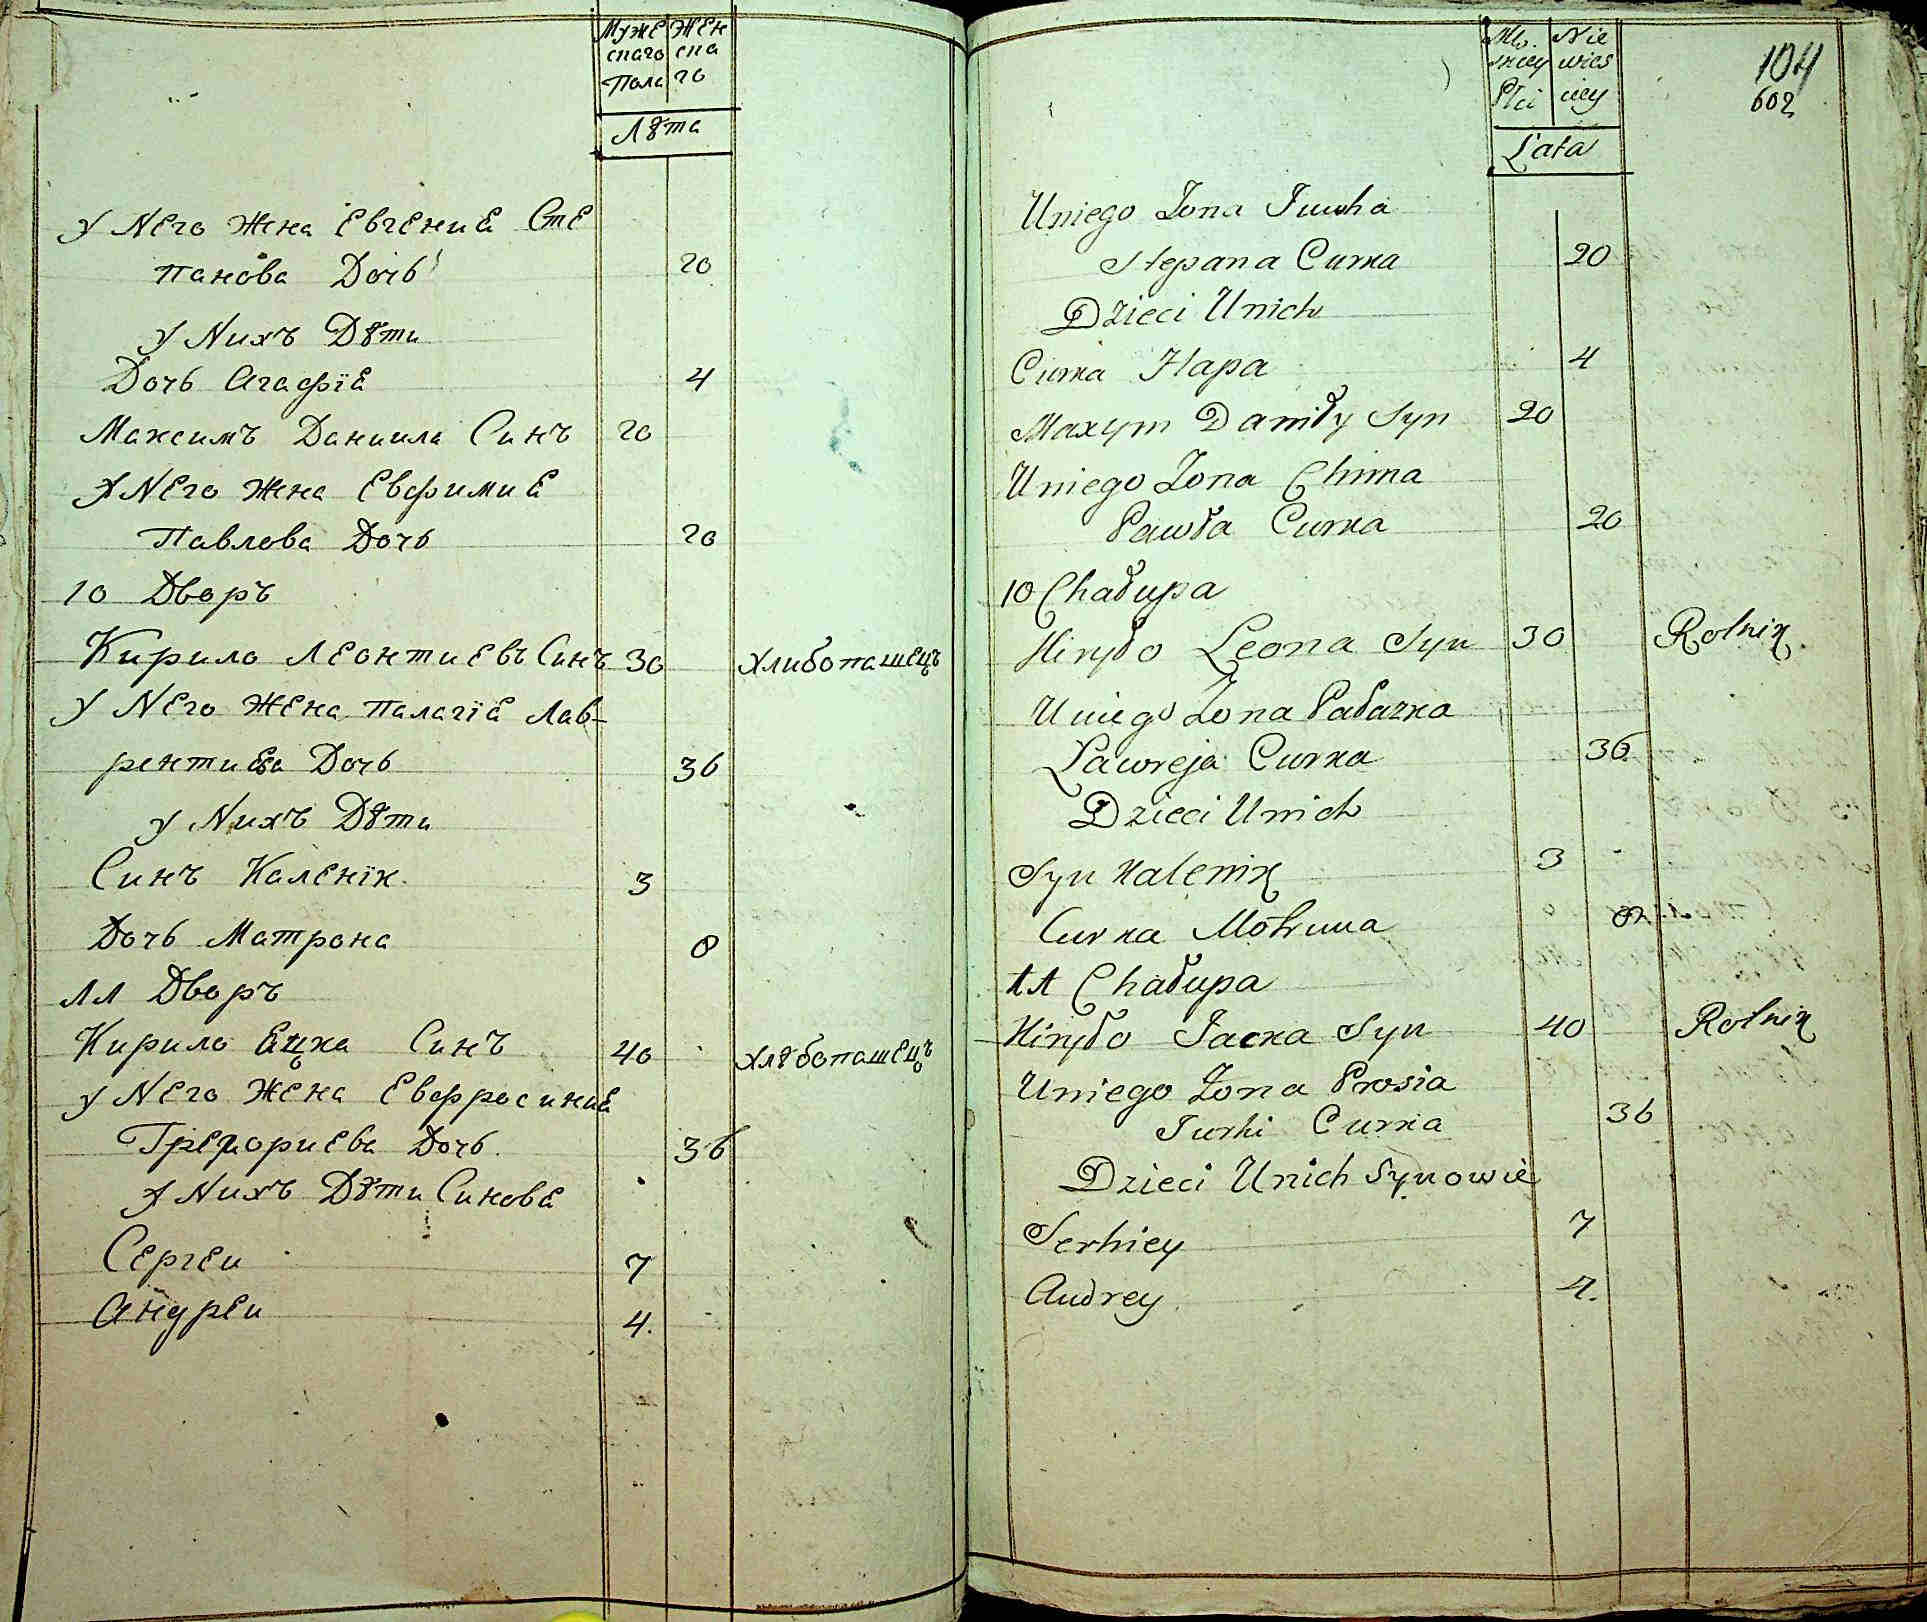 Муже Жен
скаго ска
Пола го
Лѣта
У Него Жена Евгениа Сте
панова Дочь 20
У Нихъ Дѣти
Дочь Агафїа 4
Максимъ Даниила Синъ 20
У Него Жена Евфимиа
Павлова Дочь 20
10 Дворъ
Кирило Леонтиевъ Синъ 30 Хлибопашецъ
У Него Жена Палагїа Лав-
рентиева Дочь 36
У Нихъ Дѣти
Синъ Каленїк 3
Дочь Матрона 8
11 Дворъ
Кирило Яцка Синъ 40 Хлѣбопашецъ
У Него Жена Евфросиниа
Григориева Дочь 36
У Нихъ Дѣти Синова
Сергеи 7
Андреи 4.
104
602
Mę. Nie
skiey wies
Płci ciey
Lata
Uniego Zona Juwha
Stepana Curka 20
Dzieci Unich
Curka Hapa 4
Maxym Daniły Syn 20
Uniego Zona Chima
Pawła Curka 20
10 Chałupa
Kiryło Leona Syn 30 Rolnik.
Uniego Zona Pałazka
Lawreja Curka 36
Dzieci Unich
Syn Kalenik 3
Curka Motruna 8
11 Chałupa
Kiryło Jacka Syn 40 Rolnik
Uniego Zona Prosia
Jurki Curka 36
Dzieci Unich Synowie
Serhiey 7
Andrey 4.